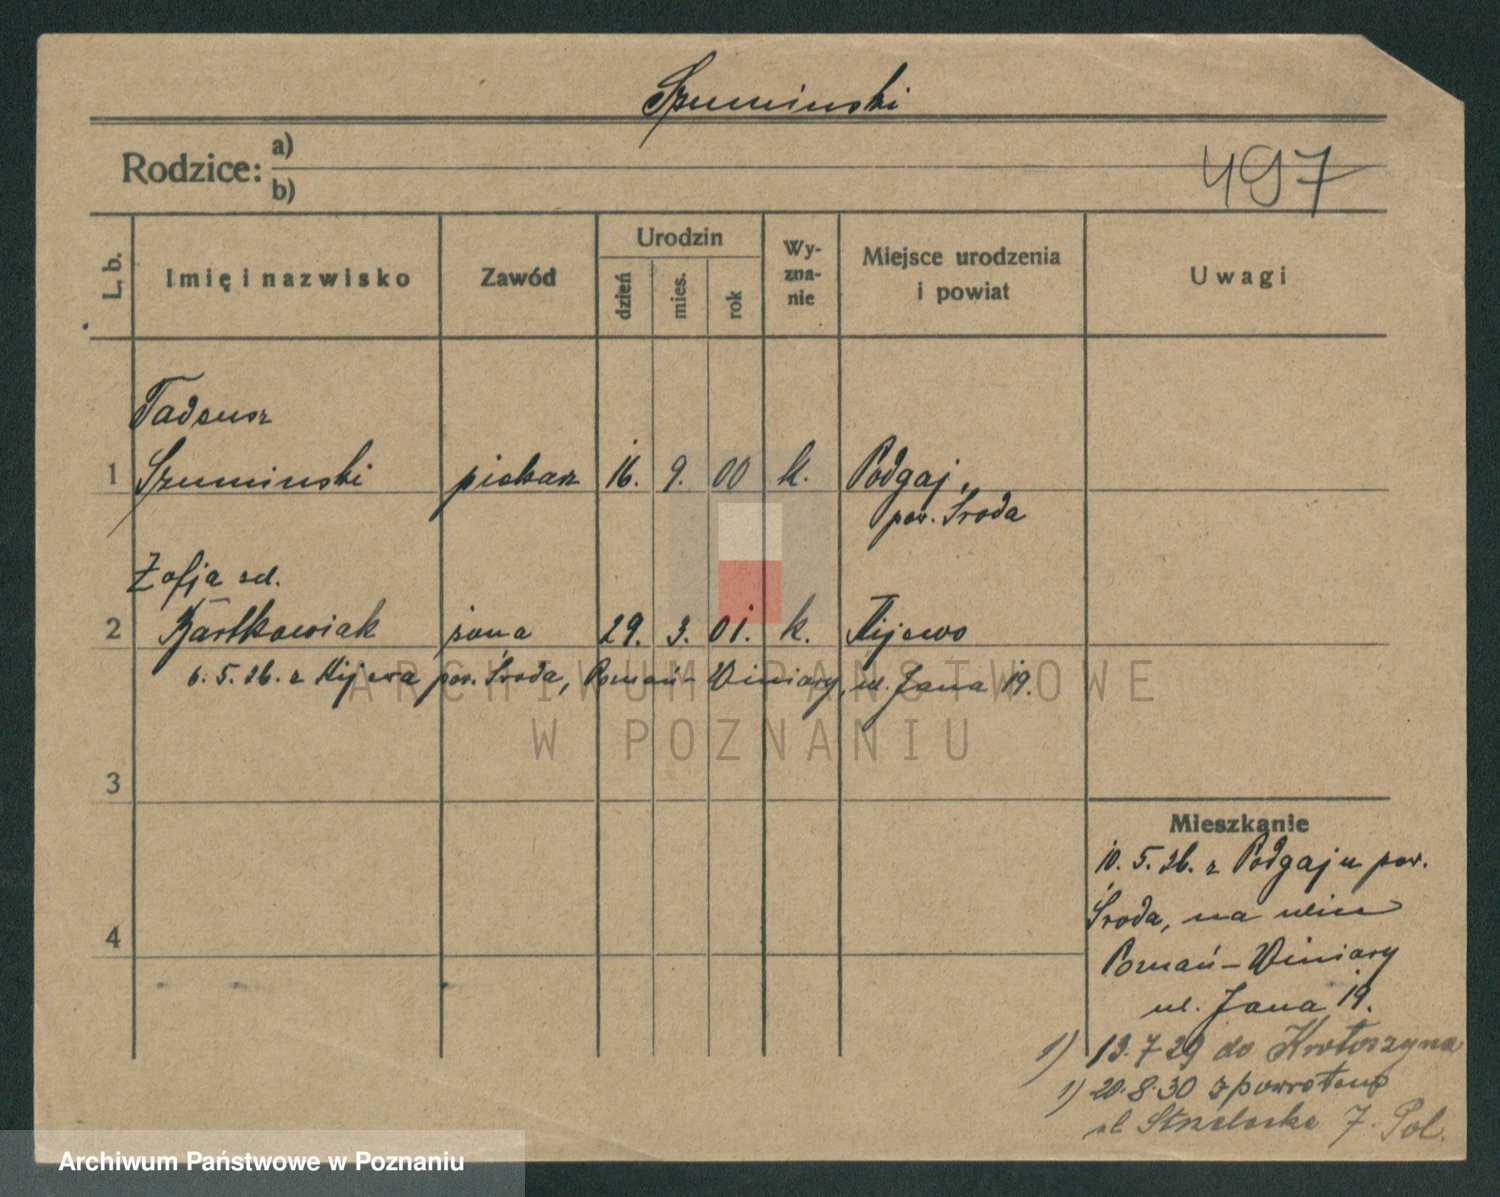 Szuminski
Rodzice: a)
b)
497
L. b.
Imię i nazwisko
Zawód
Urodzin
dzień
mies.
rok
Wy-
zna-
nie
Miejsce urodzenia
i powiat
Uwagi
Tadeusz
1 Szuminski piekarz 16. 9. 00 k. Podgaj,
pow. Środa
Zofja zd.
2 Bartkowiak żona 29. 3. 01. k. Kijewo
6. 5. 26. z Kijewa pow. Środa, Poznań-Winiary, ul. Jana 19.
3
4
Mieszkanie
10. 5. 26. z Podgaju pow.
Środa, na
Poznań-Winiary
ul. Jana 19.
1) 13.7 29 do Krotoszyna
1) 20.8.30 z powrotem
ul. Strzelecka 7. Pol.
ARCHIWUM PAŃSTWOWE
W POZNANIU
Archiwum Państwowe w Poznaniu